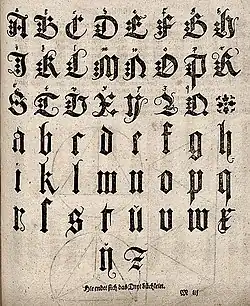 A B C D E F G H
I K L M N O P R
S T V X Y
a b c d e f g h
i k l m n o p q
r ſ s t u v w x
y z
Hie endet ſich das Dryt büchlein.
M iij